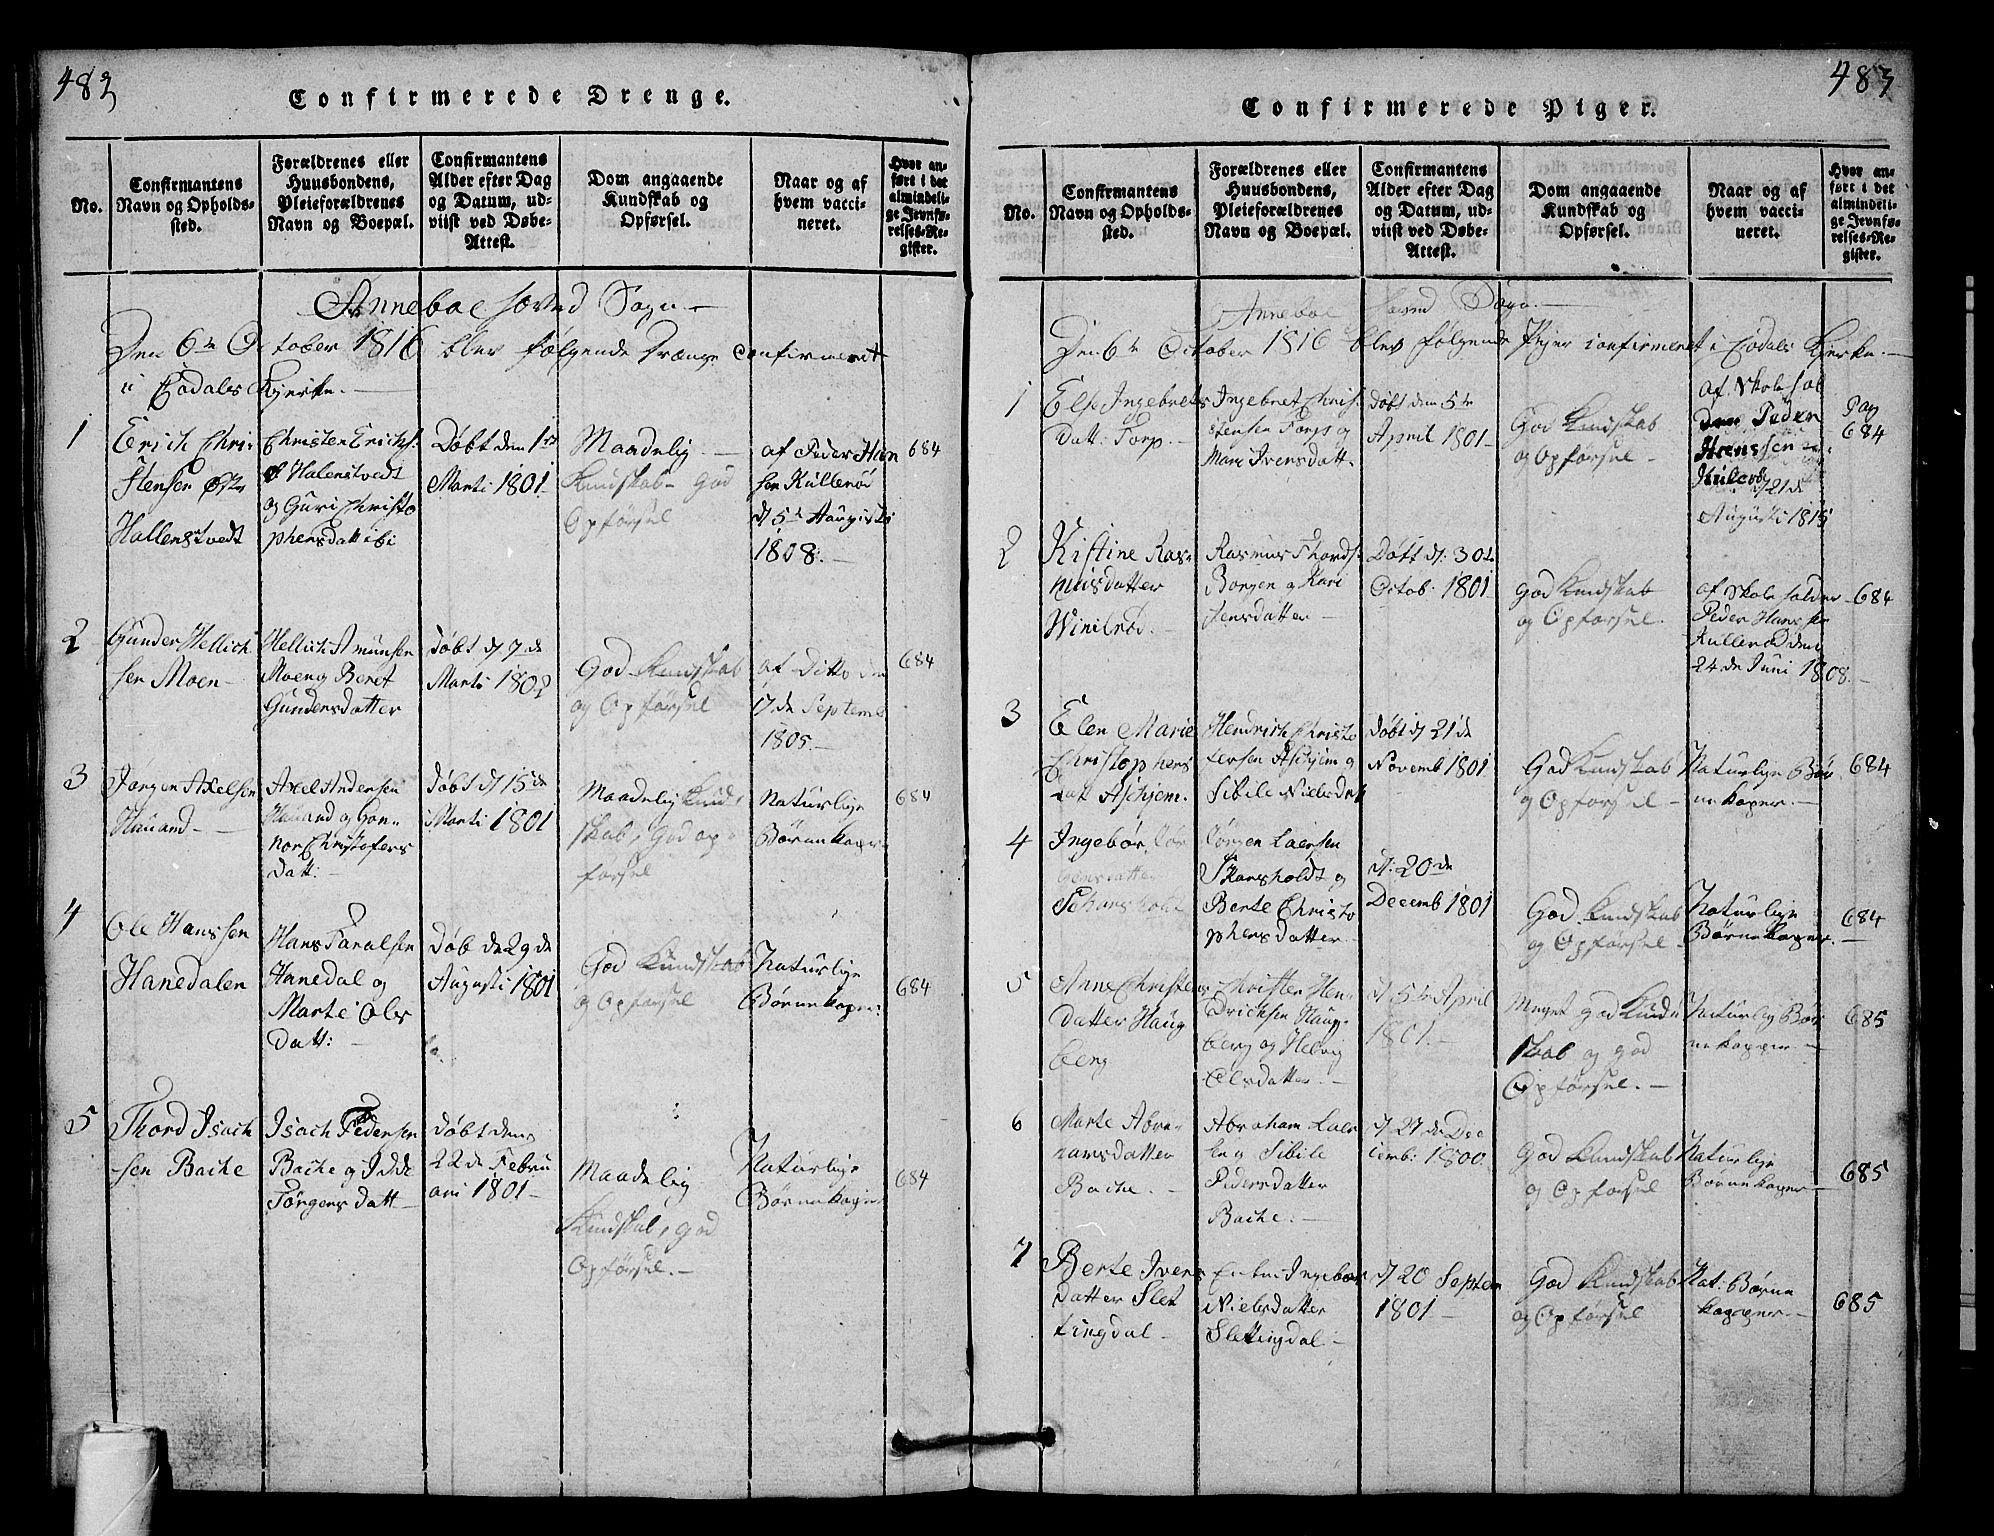 482
Confirmerede Drenge.
No.
Confirmantens
Navn og Opholds-
sted.
Forældrenes eller
Huusbondens,
Pleieforældrenes
Navn og Boepæl.
Confirmantens
Alder efter Dag
og Datum, ud-
viist ved Døbe-
Attest.
Dom angaaende
Kundskab og
Opførsel.
Naar og af
hvem vacci-
neret.
Hvor an-
ført i det
almindeli-
ge Jevnfø-
relses-Re-
gister.
Anneboe hoved Sogn
Den 6te October 1816 blev følgende Drænge confirmeret
i Eidals Kjerke. —
1
Erich Chri-
stensen
Hallenstvedt
Christen Erichs.
Halenstvedt
og Guri Christo
phersdatt ibi
Døbt den 1ste
Marti 1801
Maadelig
Kundskab - God
Opførsel
af Peder Han
sen Kullerød
d. 5te Augusti
1808. —
684
2
Gunder Hellich
sen Moen
Hellich Amunsen
Moen og Beret
Gundersdatter
Døbt d 7de
Marti 1802
God Kundskab
og Opførsel
af Ditto den
17de Septemb
1805. —
684
3
Jørgen Axelsen
Hauand —
Axel Andersen
Hauand og Gon-
nor Christofers
datt: —
Døbt d 15de
Marti 1801
Maadelig Kund-
skab, God op-
førsel
Naturlige
Børnekoper
684
4
Ole Hanssen
Hanedalen
Hans Taralsen
Hanedal og
Marte Oles
datt: —
Døb de 29de
Augusti 1801
God Kundskab
og Opførsel
Naturlige
Børnekoper:
684
5
Thord Isach
sen Bache
Isach Pedersen
Bache og Idde
Jørgens datt —
Døbt den
22de Febru
ari 1801 —
Maadelig
Kundskab, god
Opførsel. —
Naturlige
Børnekoper
684
483
Confirmerede Piger.
No.
Confirmantens
Navn og Opholds-
sted.
Forældrenes eller
Huusbondens,
Pleieforældrenes
Navn og Boepæl.
Confirmantens
Alder efter Dag
og Datum, ud-
viist ved Døbe-
Attest.
Dom angaaende
Kundskab og
Opførsel.
Naar og af
hvem vacci-
neret.
Hvor an-
ført i det
almindeli-
ge Jevnfø-
relses-Re-
gister.
Anneboe Hoved Sogn. —
Den 6te October 1816 blev følgende Piger confirmeret i Eidals Kjerke. —
1
Else Ingebrets
datt: Torp. —
Ingebret Chris-
stensen Torp og
Mari Ivensdatt.
Døbt den 5te
April 1801 —
God Kundskab
og Opførsel —
af Skolehol
deren Peder
Hanssen
Kulerød
d 21de
Augusti 1815
Pag
684
2
Kistine Ras-
musdatter
Winilrød. —
Rasmus Thords.
Borgen og Kari
Jensdatter —
Døbt d. 30te
Octob: 1801
God Kundskab
og Opførsel. —
af Skoleholder
Peder Hanssen
Kullerød den
24de Juni 1808. —
684
3
Elen Marie
Christophers
datt Aschjem.
Hendrich Christo
fersen Aschjem og
Sibile Nielsdat
Døbt d 21de
Novemb 1801
God Kundskab
og Opførsel —
Naturlige Bør
nekoper. —
684
4
Ingebør Jør
gensdatter
Schansholt
Jørgen Laersen
Skansholdt og
Berte Christo
phersdatter —
d. 20de
Decemb 1801
God Kundskab
og Opførsel —
Naturlige
Børnekopper. —
684
5
Anne Christens
datter Haug
berg
Christen Hen-
drichsen Haug-
berg og Helvig
Olsdatter. —
d 5te April
1801. —
Meget god Kund
skab og god
Opførsel. —
Naturlig Bør
nekopper. —
685
6
Marte Abra-
hamsdatter
Bache. —
Abraham Laer
sen og Sibile
Pedersdatter
Bache. —
d 27de Dec
cemb: 1800.
God Kundskab
og Opførsel
Naturlige
Børnekoper —
685
7
Berte Ivers
datter Slet
tingdal —
Enken Ingebor
Nielsdatter
Slettingdal —
d 20 Septem
1801 —
God Kundskab
og Opførsel
Nat: Børne
kopper —
685